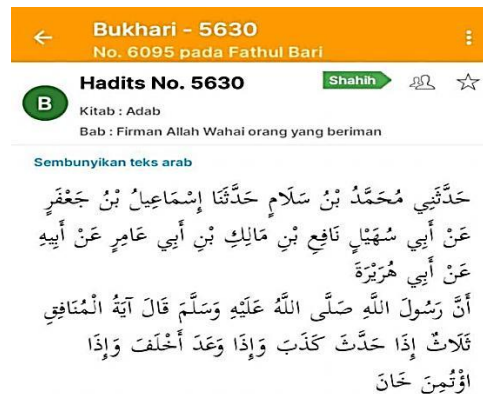 Bukhari - 5630
No. 6095 pada Fathul Bari
Hadits No. 5630
Shahih
B
Kitab : Adab
Bab : Firman Allah Wahai orang yang beriman
Sembunyikan teks arab
حَدَّثَنِي مُحَمَّدُ بْنُ سَلَامٍ حَدَّثَنَا إِسْمَاعِيلُ بْنُ جَعْفَرٍ
عَنْ أَبِي سُهَيْلٍ نَافِعِ بْنِ مَالِكِ بْنِ أَبِي عَامِرٍ عَنْ أَبِيهِ
عَنْ أَبِي هُرَيْرَةَ
أَنَّ رَسُولَ اللَّهِ صَلَّى اللَّهُ عَلَيْهِ وَسَلَّمَ قَالَ آيَةُ الْمُنَافِقِ
ثَلَاثٌ إِذَا حَدَّثَ كَذَبَ وَإِذَا وَعَدَ أَخْلَفَ وَإِذَا
اؤْتُمِنَ خَانَ